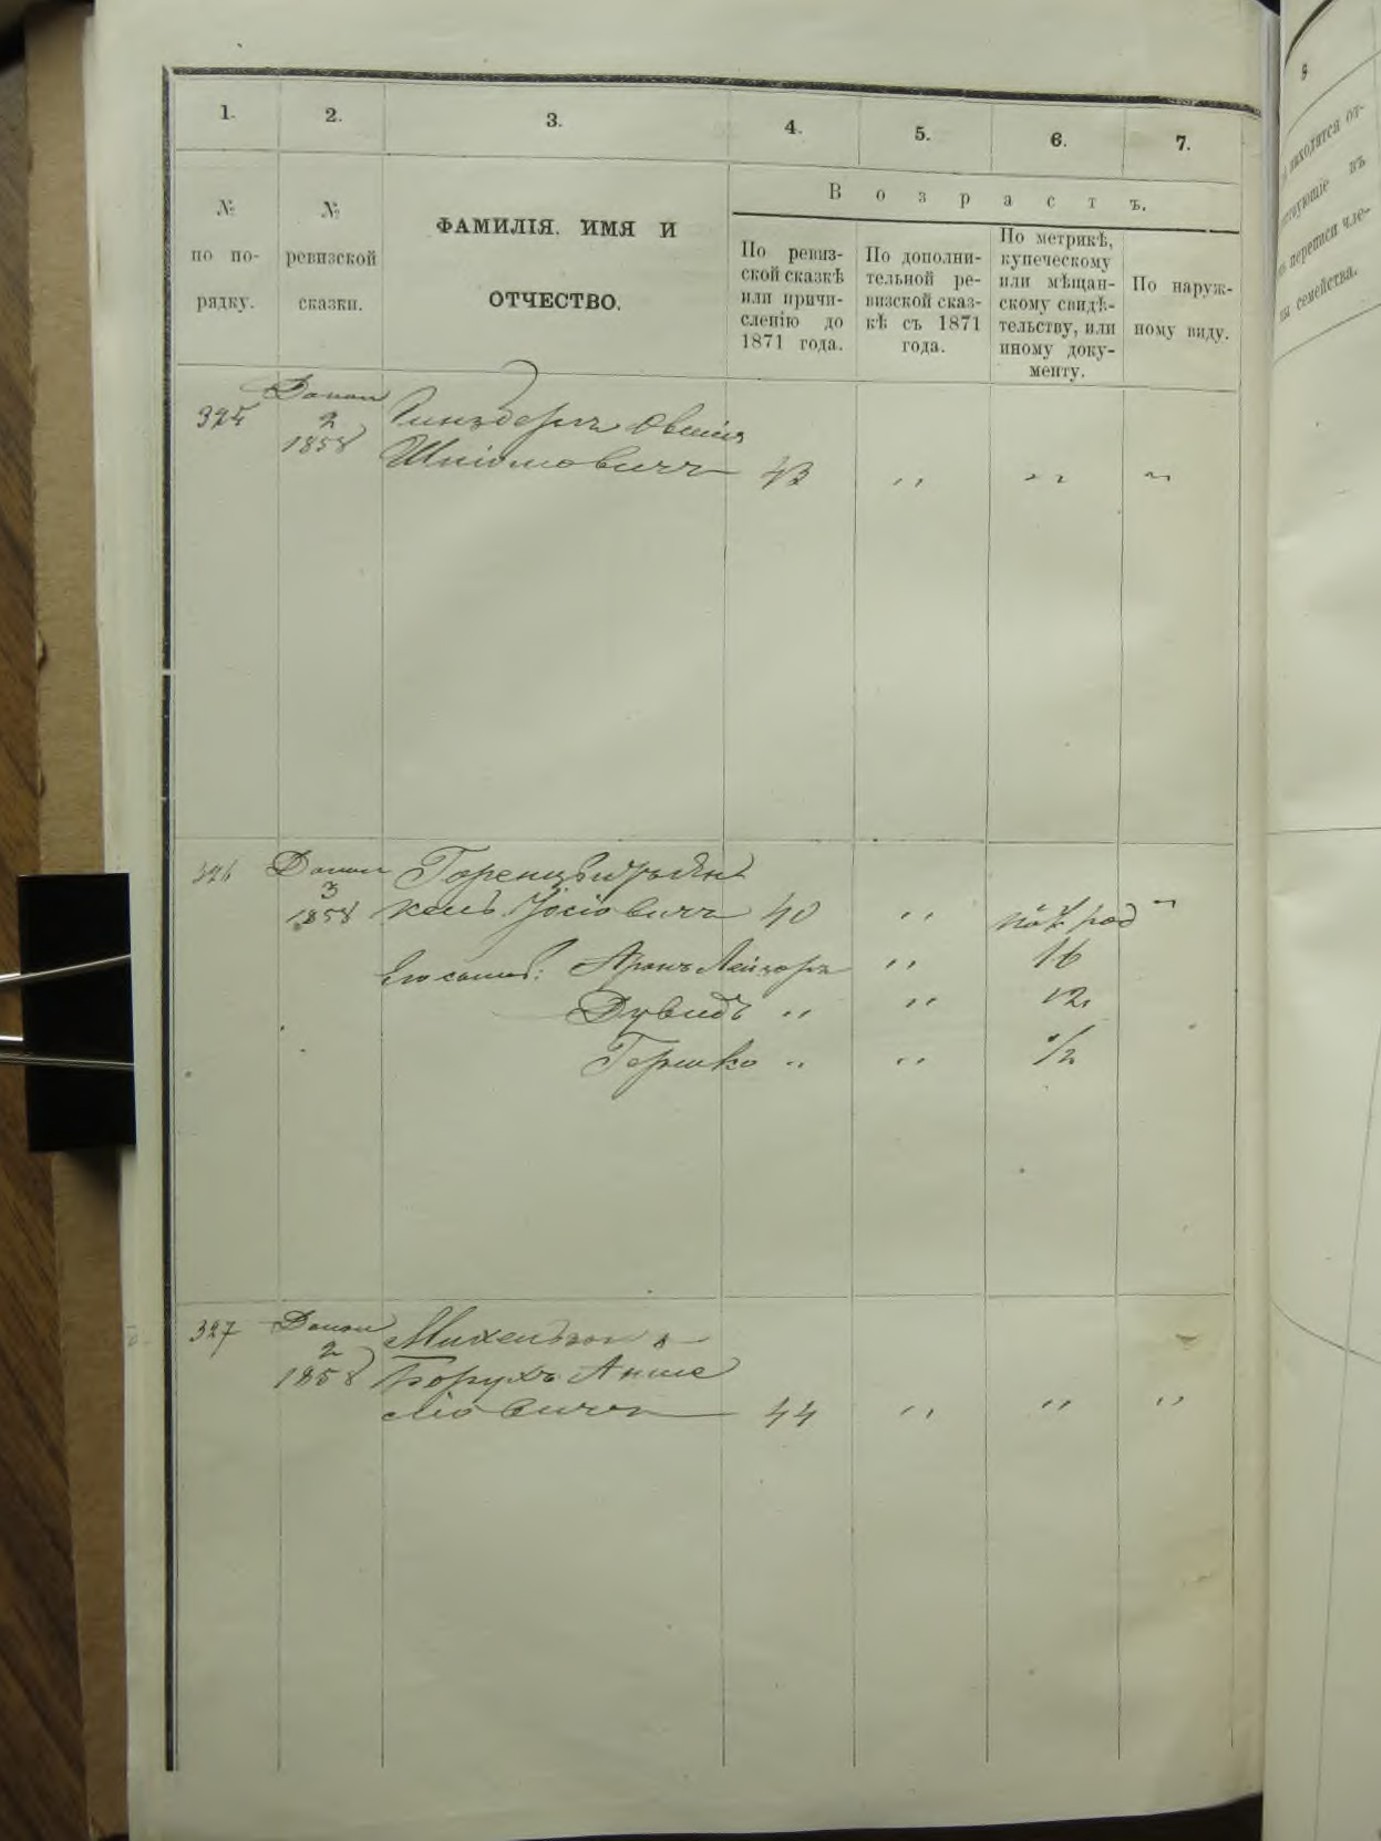 1. 2. 3. 4. 5. 6. 7.
№
по по-
рядку.
№
ревизской
сказки.
ФАМИЛІЯ, ИМЯ И
ОТЧЕСТВО.
Возрастъ.
По ревиз-
ской сказкѣ
или причи-
сленію до
1871 года.
По дополни-
тельной ре-
визской сказ-
кѣ съ 1871
года.
По метрикѣ,
купеческому
или мѣщан-
скому свидѣ-
тельству, или
иному доку-
менту.
По наруж-
ному виду.
325
Допол
2
1858
Овшія
Шліомовичъ 43 „ „ „
326
Допол
3
1858
Янкель Іосіовичъ 40 „
Его сынов: Аронъ Лейзоръ „ 16
Дувидъ „ „ 12
Гершко „ „ 1/2
327
Допол
2
1858
Михельзон
Борухъ Анше
ліовичъ 44 „ „ „
9
находятся от-
въ
переписи чле-
ны семейства.